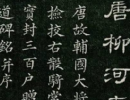 唐柳河東
唐故輔國大將
檢挍右散騎常
實封三百戶贈
道碑銘并序